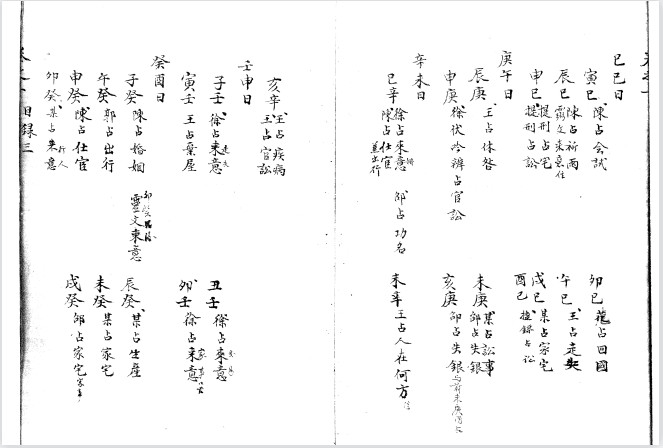 己巳日
寅巳 陳占会試
卯巳 龍占回國
辰巳 陳占祈雨
霸文來意住
午巳 王占走失
申巳 提刑占宅
提刑占訟
戌巳 某占家宅
酉巳 占訟
庚午日
辰庚 王占休咎
未庚 某占訟事
邵占失銀
申庚 徐伏吟辨占官訟
亥庚 邵占失銀
辛未日
巳辛 徐占來意
陳占仕官
並出行
邵占功名
未辛 王占人在何方
亥辛 王占疾病
王占官訟
壬申日
子壬 徐占來意
丑壬 徐占來意
寅壬 王占棄屋
卯壬 徐占來意
癸酉日
子癸 陳占婚姻
靈文來意
辰癸 某占生產
午癸 郭占出行
未癸 某占家宅
申癸 陳占仕官
戌癸 邵占家宅
卯癸 某占來意
行人
目錄三